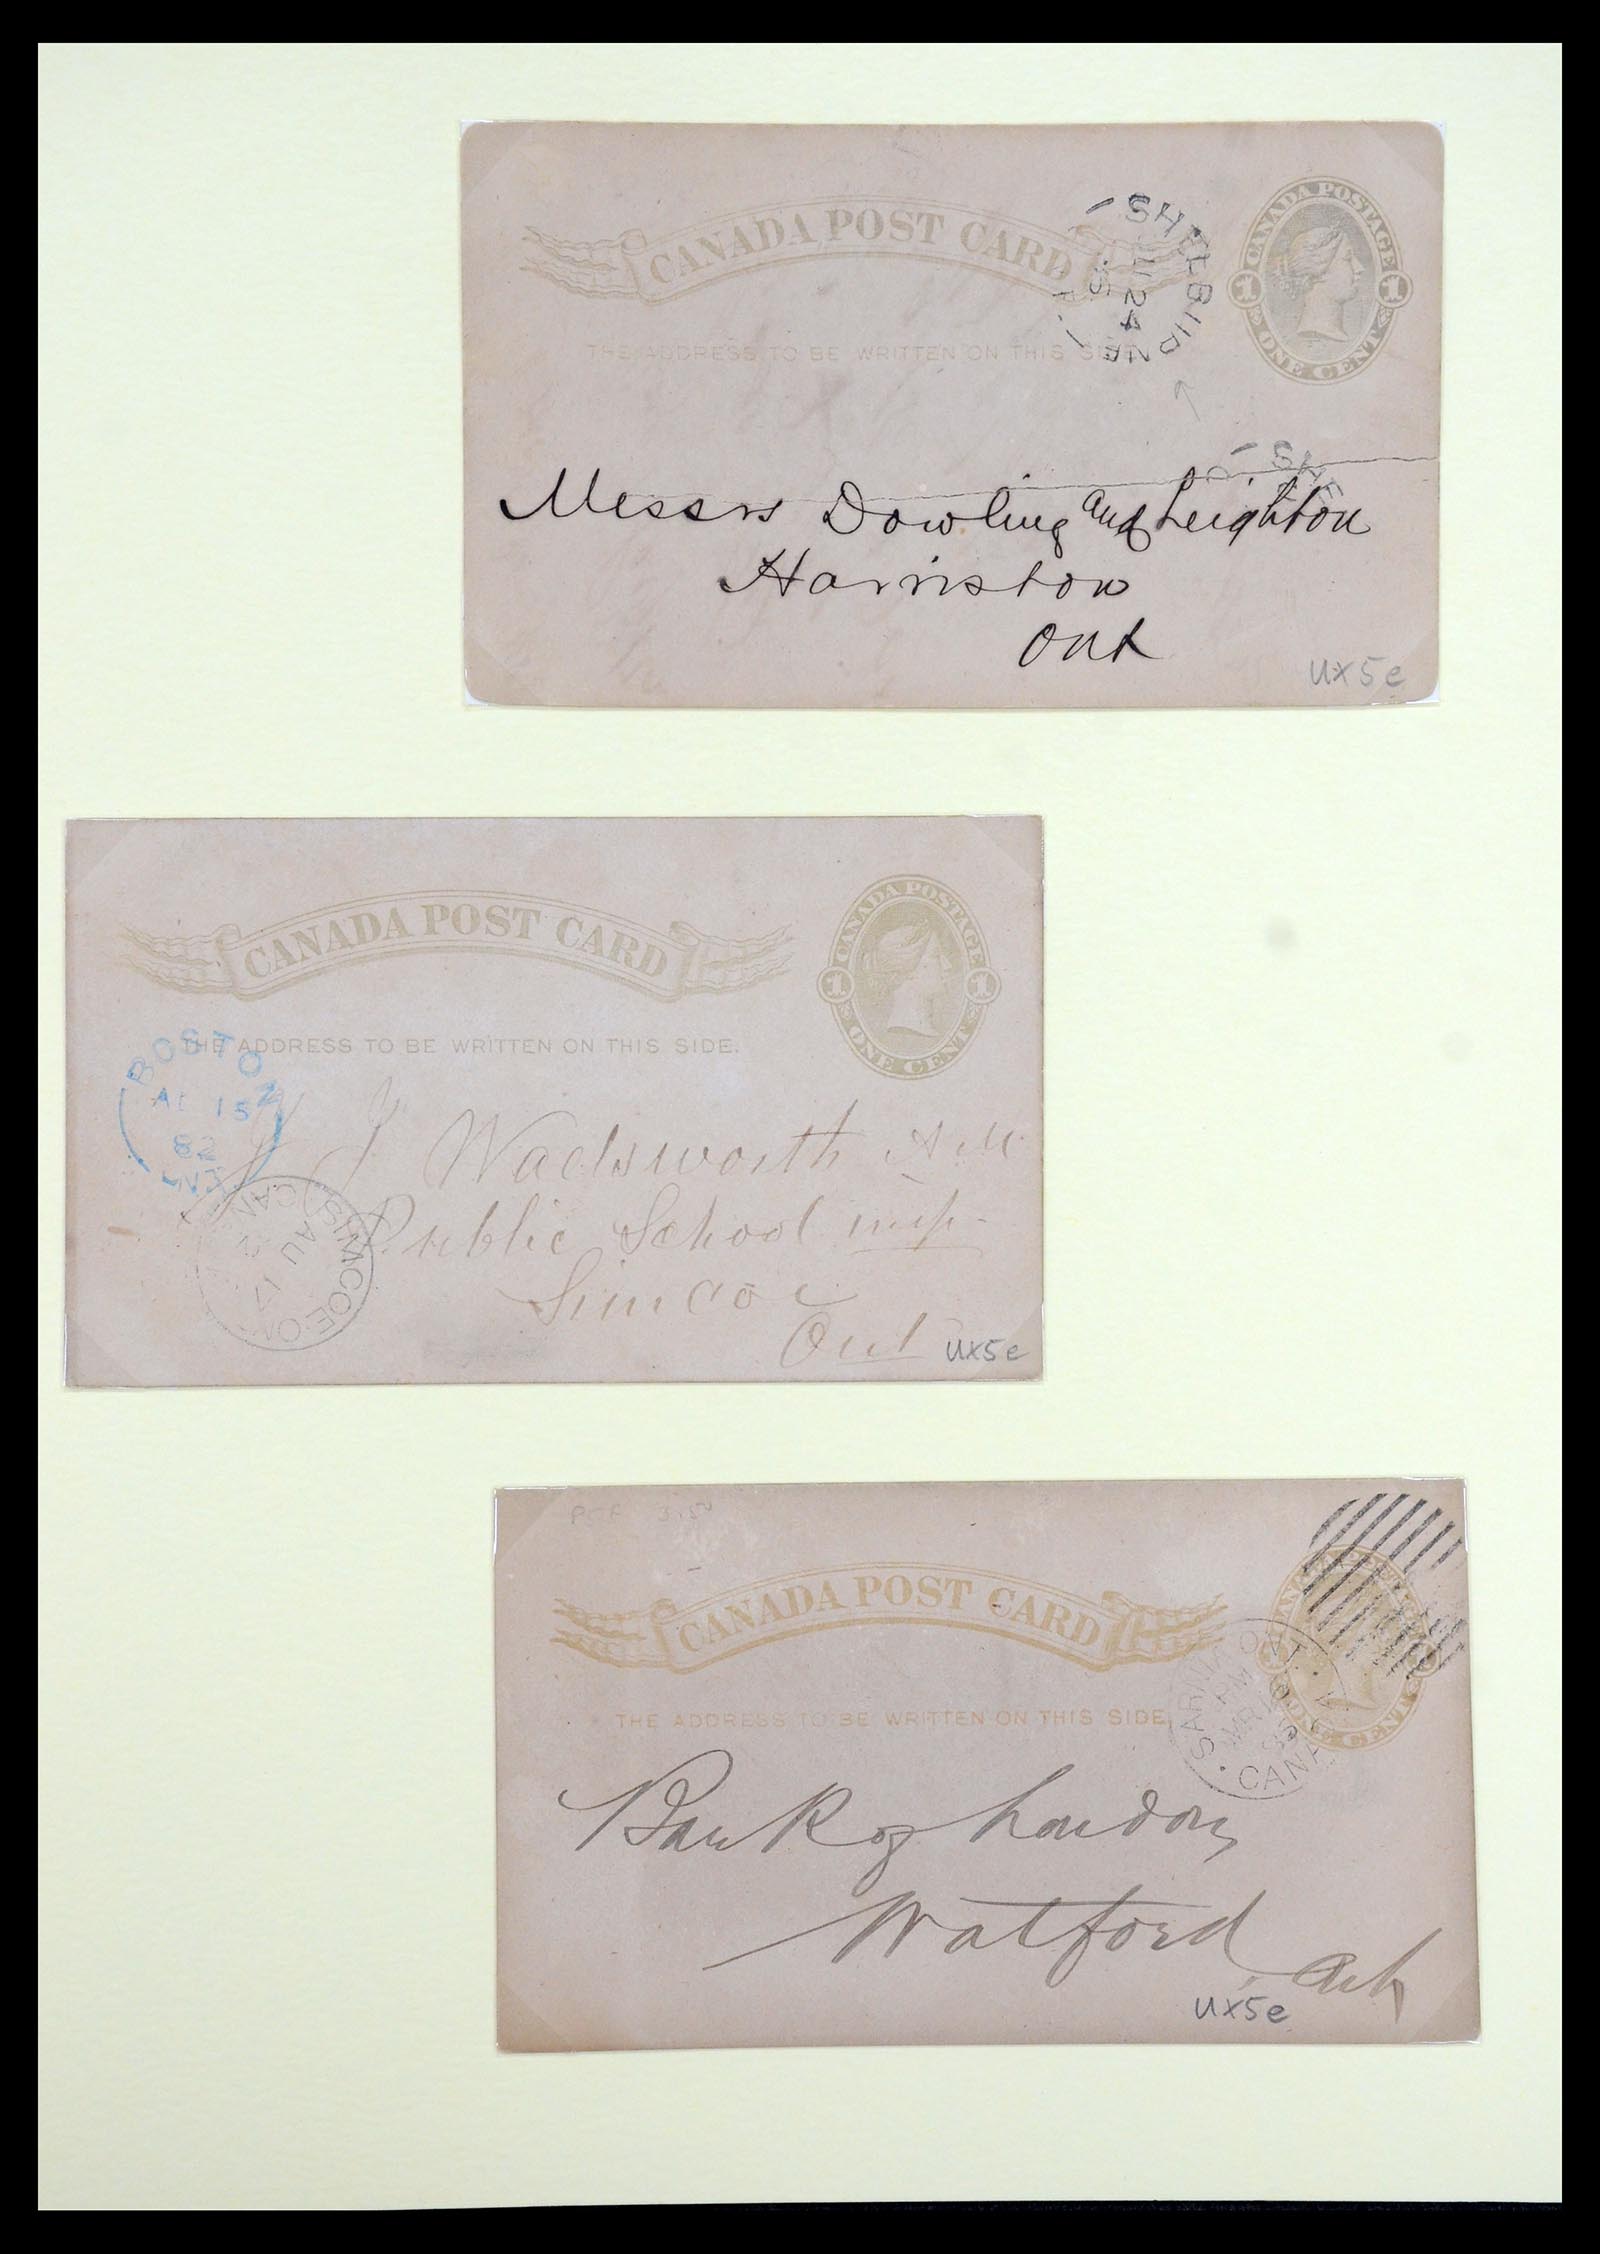 CANADA POST CARD
CANADA POSTAGE
1 1
ONE CENT
THE ADDRESS TO BE WRITTEN ON THIS
24
SHE
Messrs Dowling and Leighton
Harriston
Ont
UX5e
CANADA POST CARD
CANADA POSTAGE
1 1
ONE CENT
THE ADDRESS TO BE WRITTEN ON THIS SIDE.
BOSTON
15
82
ONT
J J Wadsworth A M
Public School insp.
Simcoe
Ont
SIMCOE
AU 17
CAN
UX5e
3.50
CANADA POST CARD
ONE CENT
THE ADDRESS TO BE WRITTEN ON THIS SIDE
SARNIA ONT
PM
MR
CANADA
Bank of London
Watford
Ont
UX5e